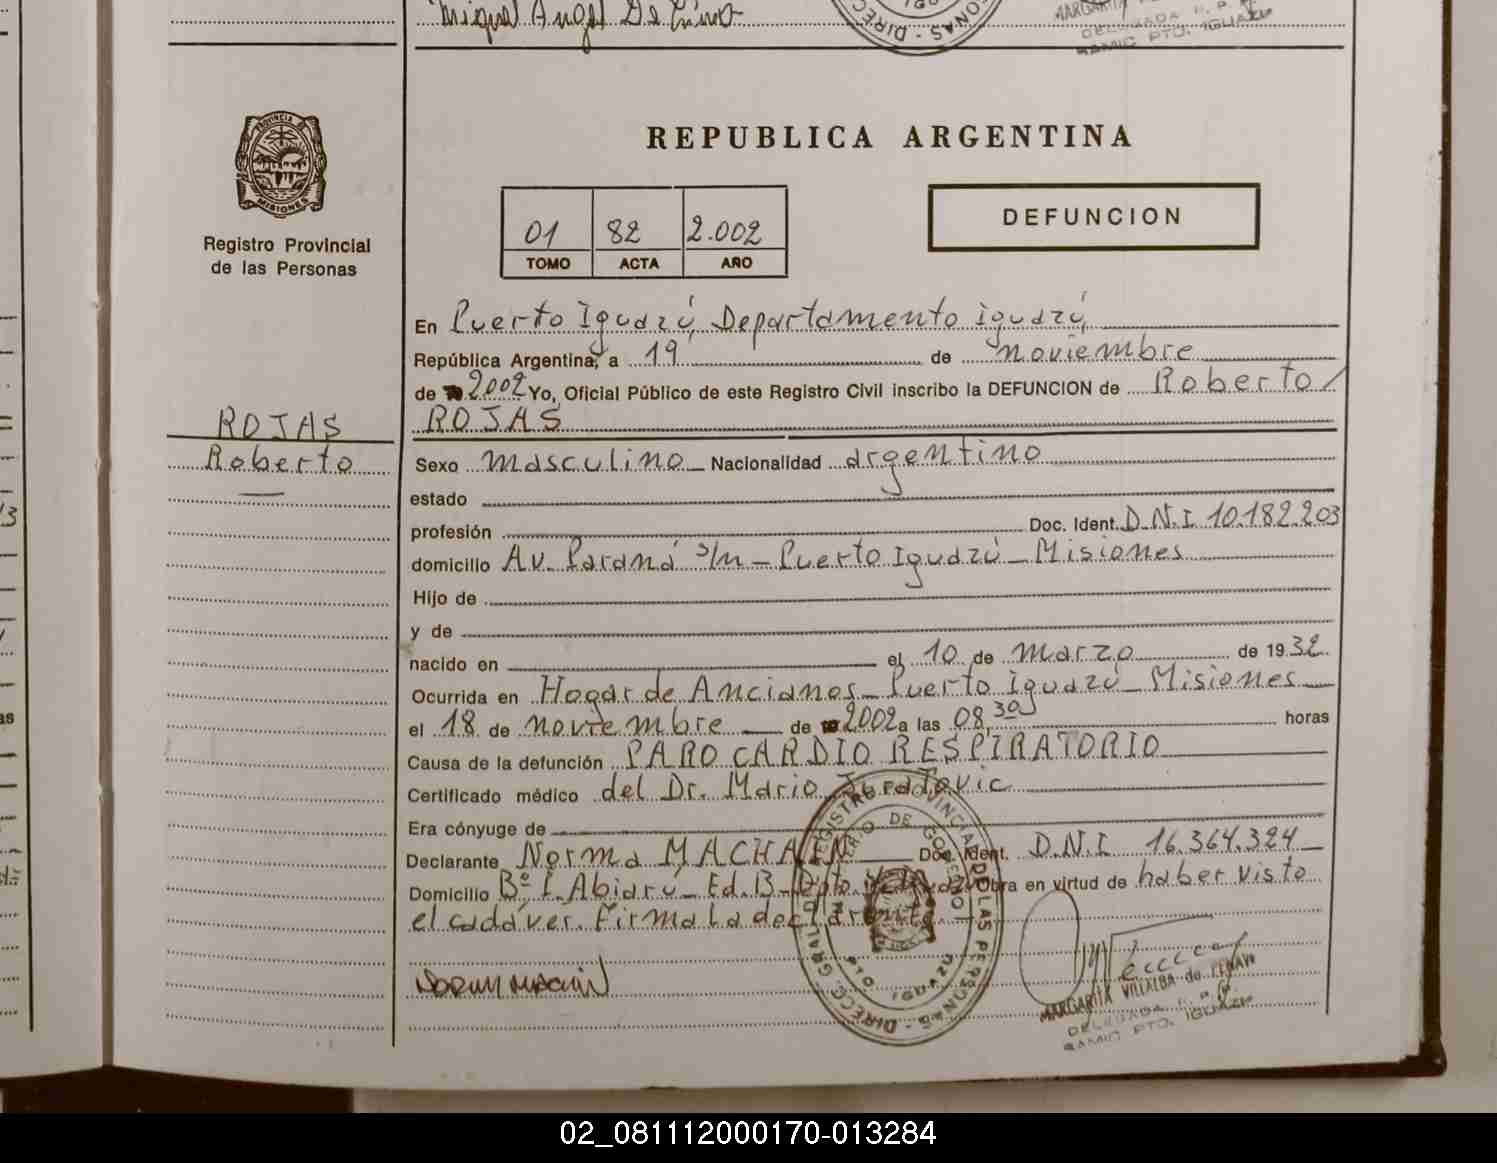 Miguel Angel De Lima
DIRECC
ONAS
MARGARITA
DELEGADA R. P. P.
RAMIC PTO. IGUAZU
PROVINCIA DE
MISIONES
Registro Provincial
de las Personas
REPUBLICA ARGENTINA
01 82 2.002
TOMO ACTA AÑO
DEFUNCION
En Puerto Iguazú, Departamento Iguazú,
República Argentina, a 19 de noviembre
de 2002 Yo, Oficial Público de este Registro Civil inscribo la DEFUNCION de Roberto/
ROJAS
ROJAS
Roberto
Sexo masculino Nacionalidad argentino
estado
profesión Doc. Ident. D.N.I 10.182.203
domicilio Av. Paraná s/n - Puerto Iguazú - Misiones
Hijo de
y de
nacido en el 10 de marzo de 1932
Ocurrida en Hogar de Ancianos - Puerto Iguazú - Misiones
el 18 de noviembre de 2002 a las 08,30 horas
Causa de la defunción PARO CARDIO RESPIRATORIO
Certificado médico del Dr. Mario
Era cónyuge de
Declarante Norma MACHAIN Doc. Ident. D.N.I 16.364.324
Domicilio Bº F. Abiarú - Ed. 13 - Obra en virtud de haber visto
el cadáver. Firma la declarante.
REGISTRO PROVINCIAL DE LAS PERSONAS - DIRECC. GRAL. DEL
PTO. IGUAZU
MARGARITA VILLALBA de
DELEGADA R. P. P.
RAMIC PTO. IGUAZU
02_081112000170-013284